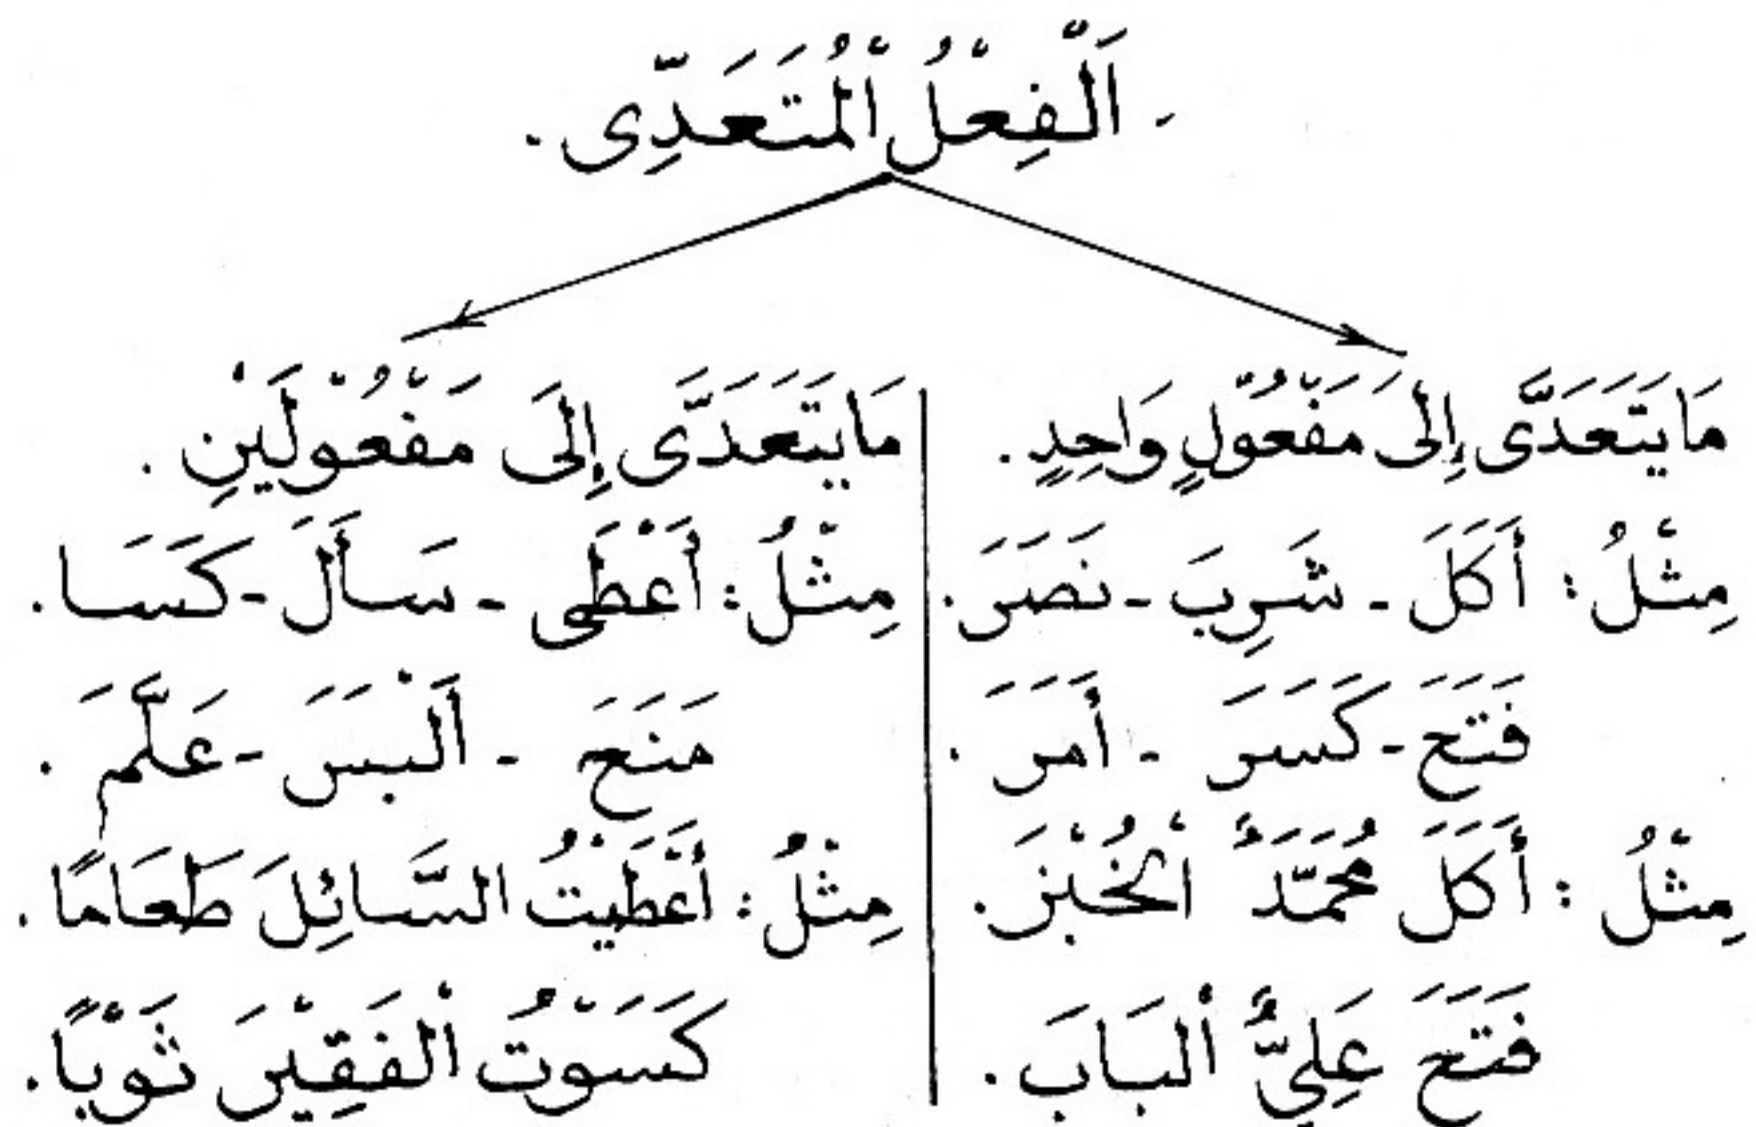 - اَلْفِعْلُ الْمُتَعَدِّى .
مَا يَتَعَدَّى إِلَى مَفْعُوْلٍ وَاحِدٍ .
مِثْلُ : أَكَلَ - شَرِبَ - نَصَرَ .
فَتَحَ - كَسَرَ - أَمَرَ .
مِثْلُ : أَكَلَ مُحَمَّدٌ اْلخُبْزَ .
فَتَحَ عَلِيٌّ اْلبَابَ .
مَا يَتَعَدَّى إِلَى مَفْعُوْلَيْنِ .
مِثْلُ : أَعْطَى - سَأَلَ - كَسَا .
مَنَعَ - أَلْبَسَ - عَلَّمَ .
مِثْلُ : أَعْطَيْتُ السَّائِلَ طَعَامًا .
كَسَوْتُ اْلفَقِيْرَ ثَوْبًا .